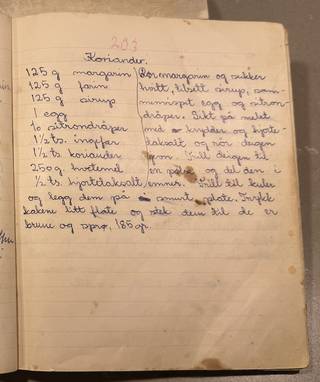 203
Koriander.
125 g margarin
125 g farin
125 g sirup
1 egg
10 sitrondråper
1½ ts. ingefær
1½ ts koriander
250 g. hvetemel
½ ts. hjortetaksalt
Rør margarin og sukker
hvitt, tilsett sirup, sam-
menvispet egg og sitron-
dråper. Sikt på melet
med krydder og hjorte-
taksalt og rør deigen
jevn. Trill deigen til
en pølse og del den i
emner. Trill til kuler
og legg dem på smurt plate. Trykk
kakene litt flate og stek dem til de er
brune og sprø, 185 gr.